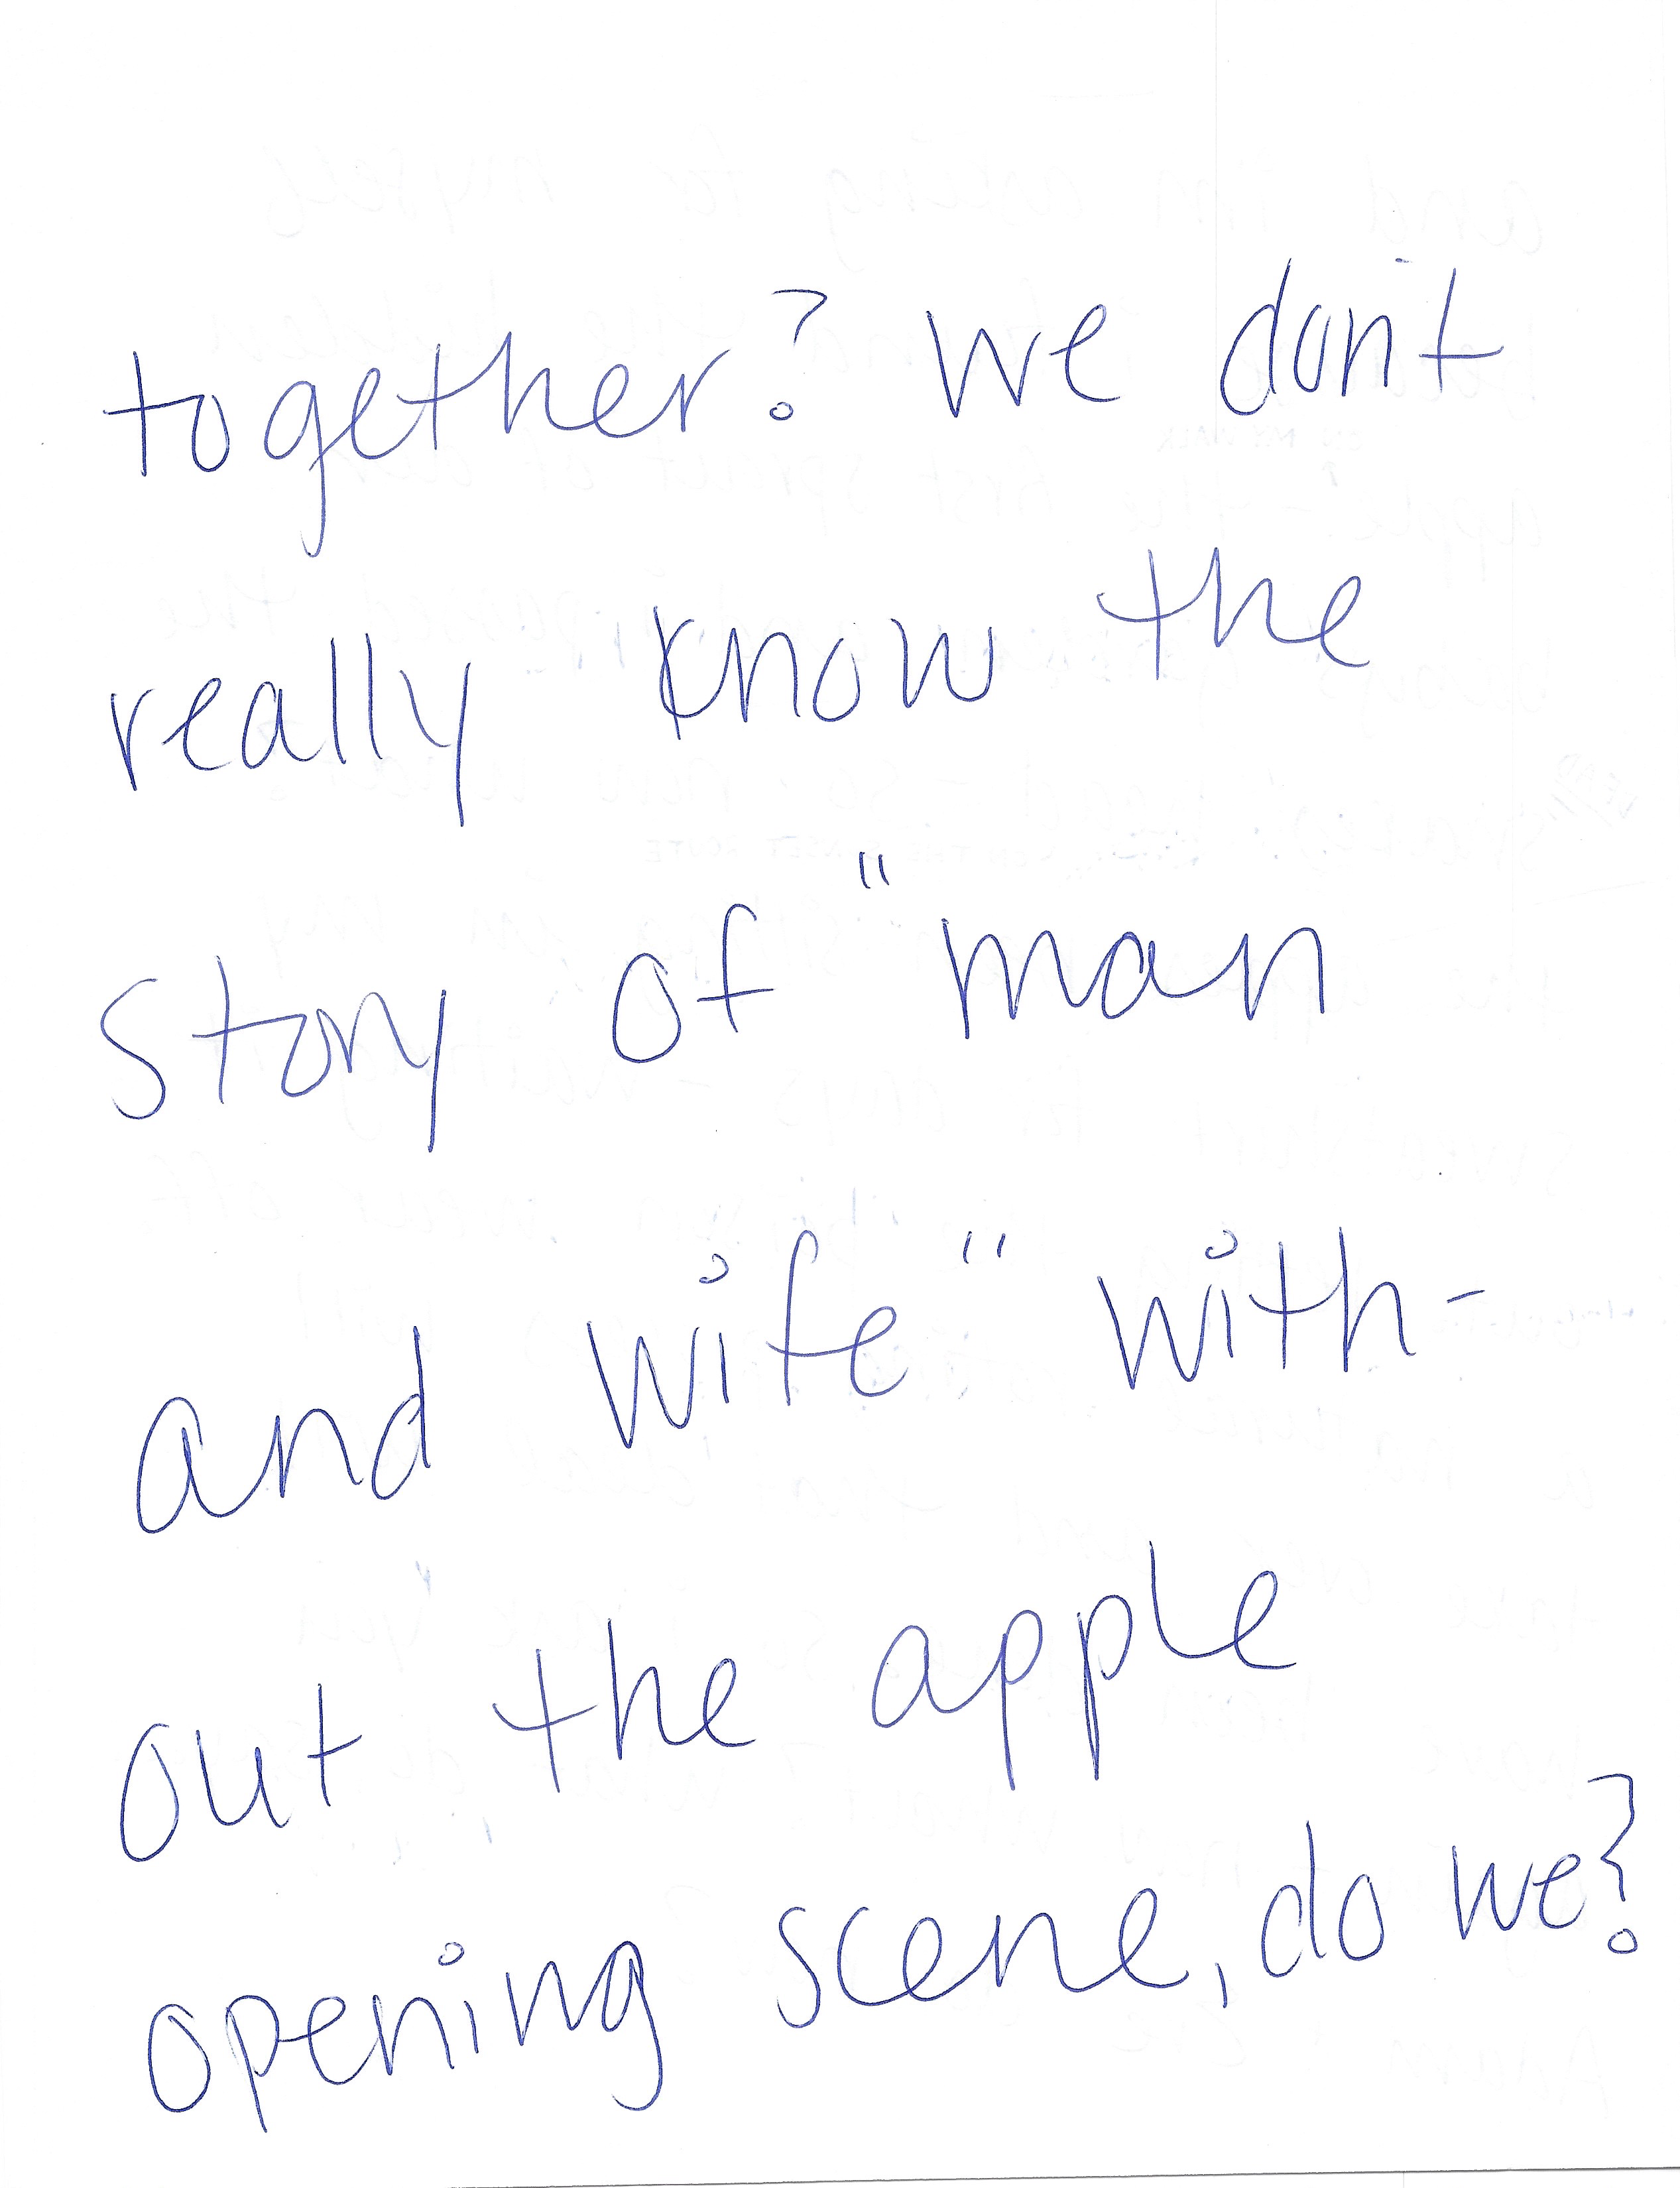 together? We don't
really know the
story of "man
and wife" with-
out the apple
opening scene, do we?